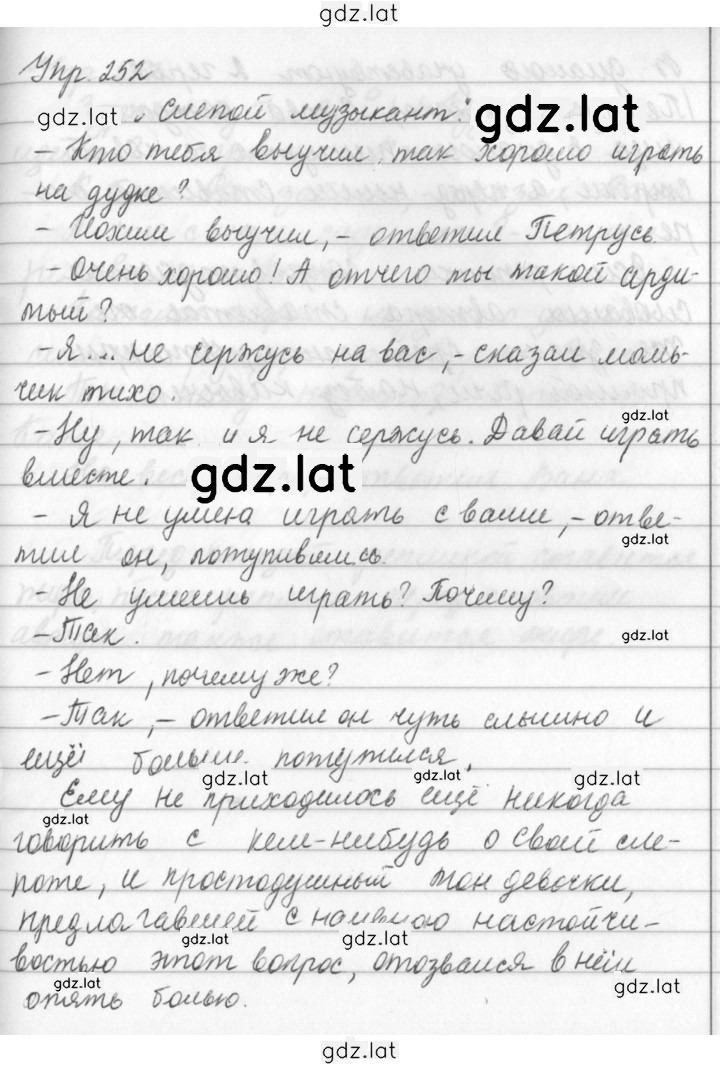 gdz.lat
Упр. 252
gdz.lat „Слепой музыкант“ gdz.lat
– Кто тебя выучил так хорошо играть
на дудке?
– Иохим выучил, – ответил Петрусь.
– Очень хорошо! А отчего ты такой
мый?
– Я... не сержусь на вас, – сказал маль-
чик тихо.
gdz.lat
– Ну, так и я не сержусь. Давай играть
вместе. gdz.lat
– Я не умею играть с вами, – отве-
gdz.lat
тил он, потупившись.
– Не умеешь играть? Почему?
– Так. gdz.lat
– Нет, почему же?
– Так, – ответил он чуть слышно и
ещё больше потупился.
gdz.lat gdz.lat gdz.lat
Ему не приходилось ещё никогда
gdz.lat
говорить с кем-нибудь о своей сле-
поте, и простодушный тон девочки,
предлагавшей с наивною настойчи-
gdz.lat gdz.lat
востью этот вопрос, отозвался в нём
gdz.lat gdz.lat
опять болью.
gdz.lat